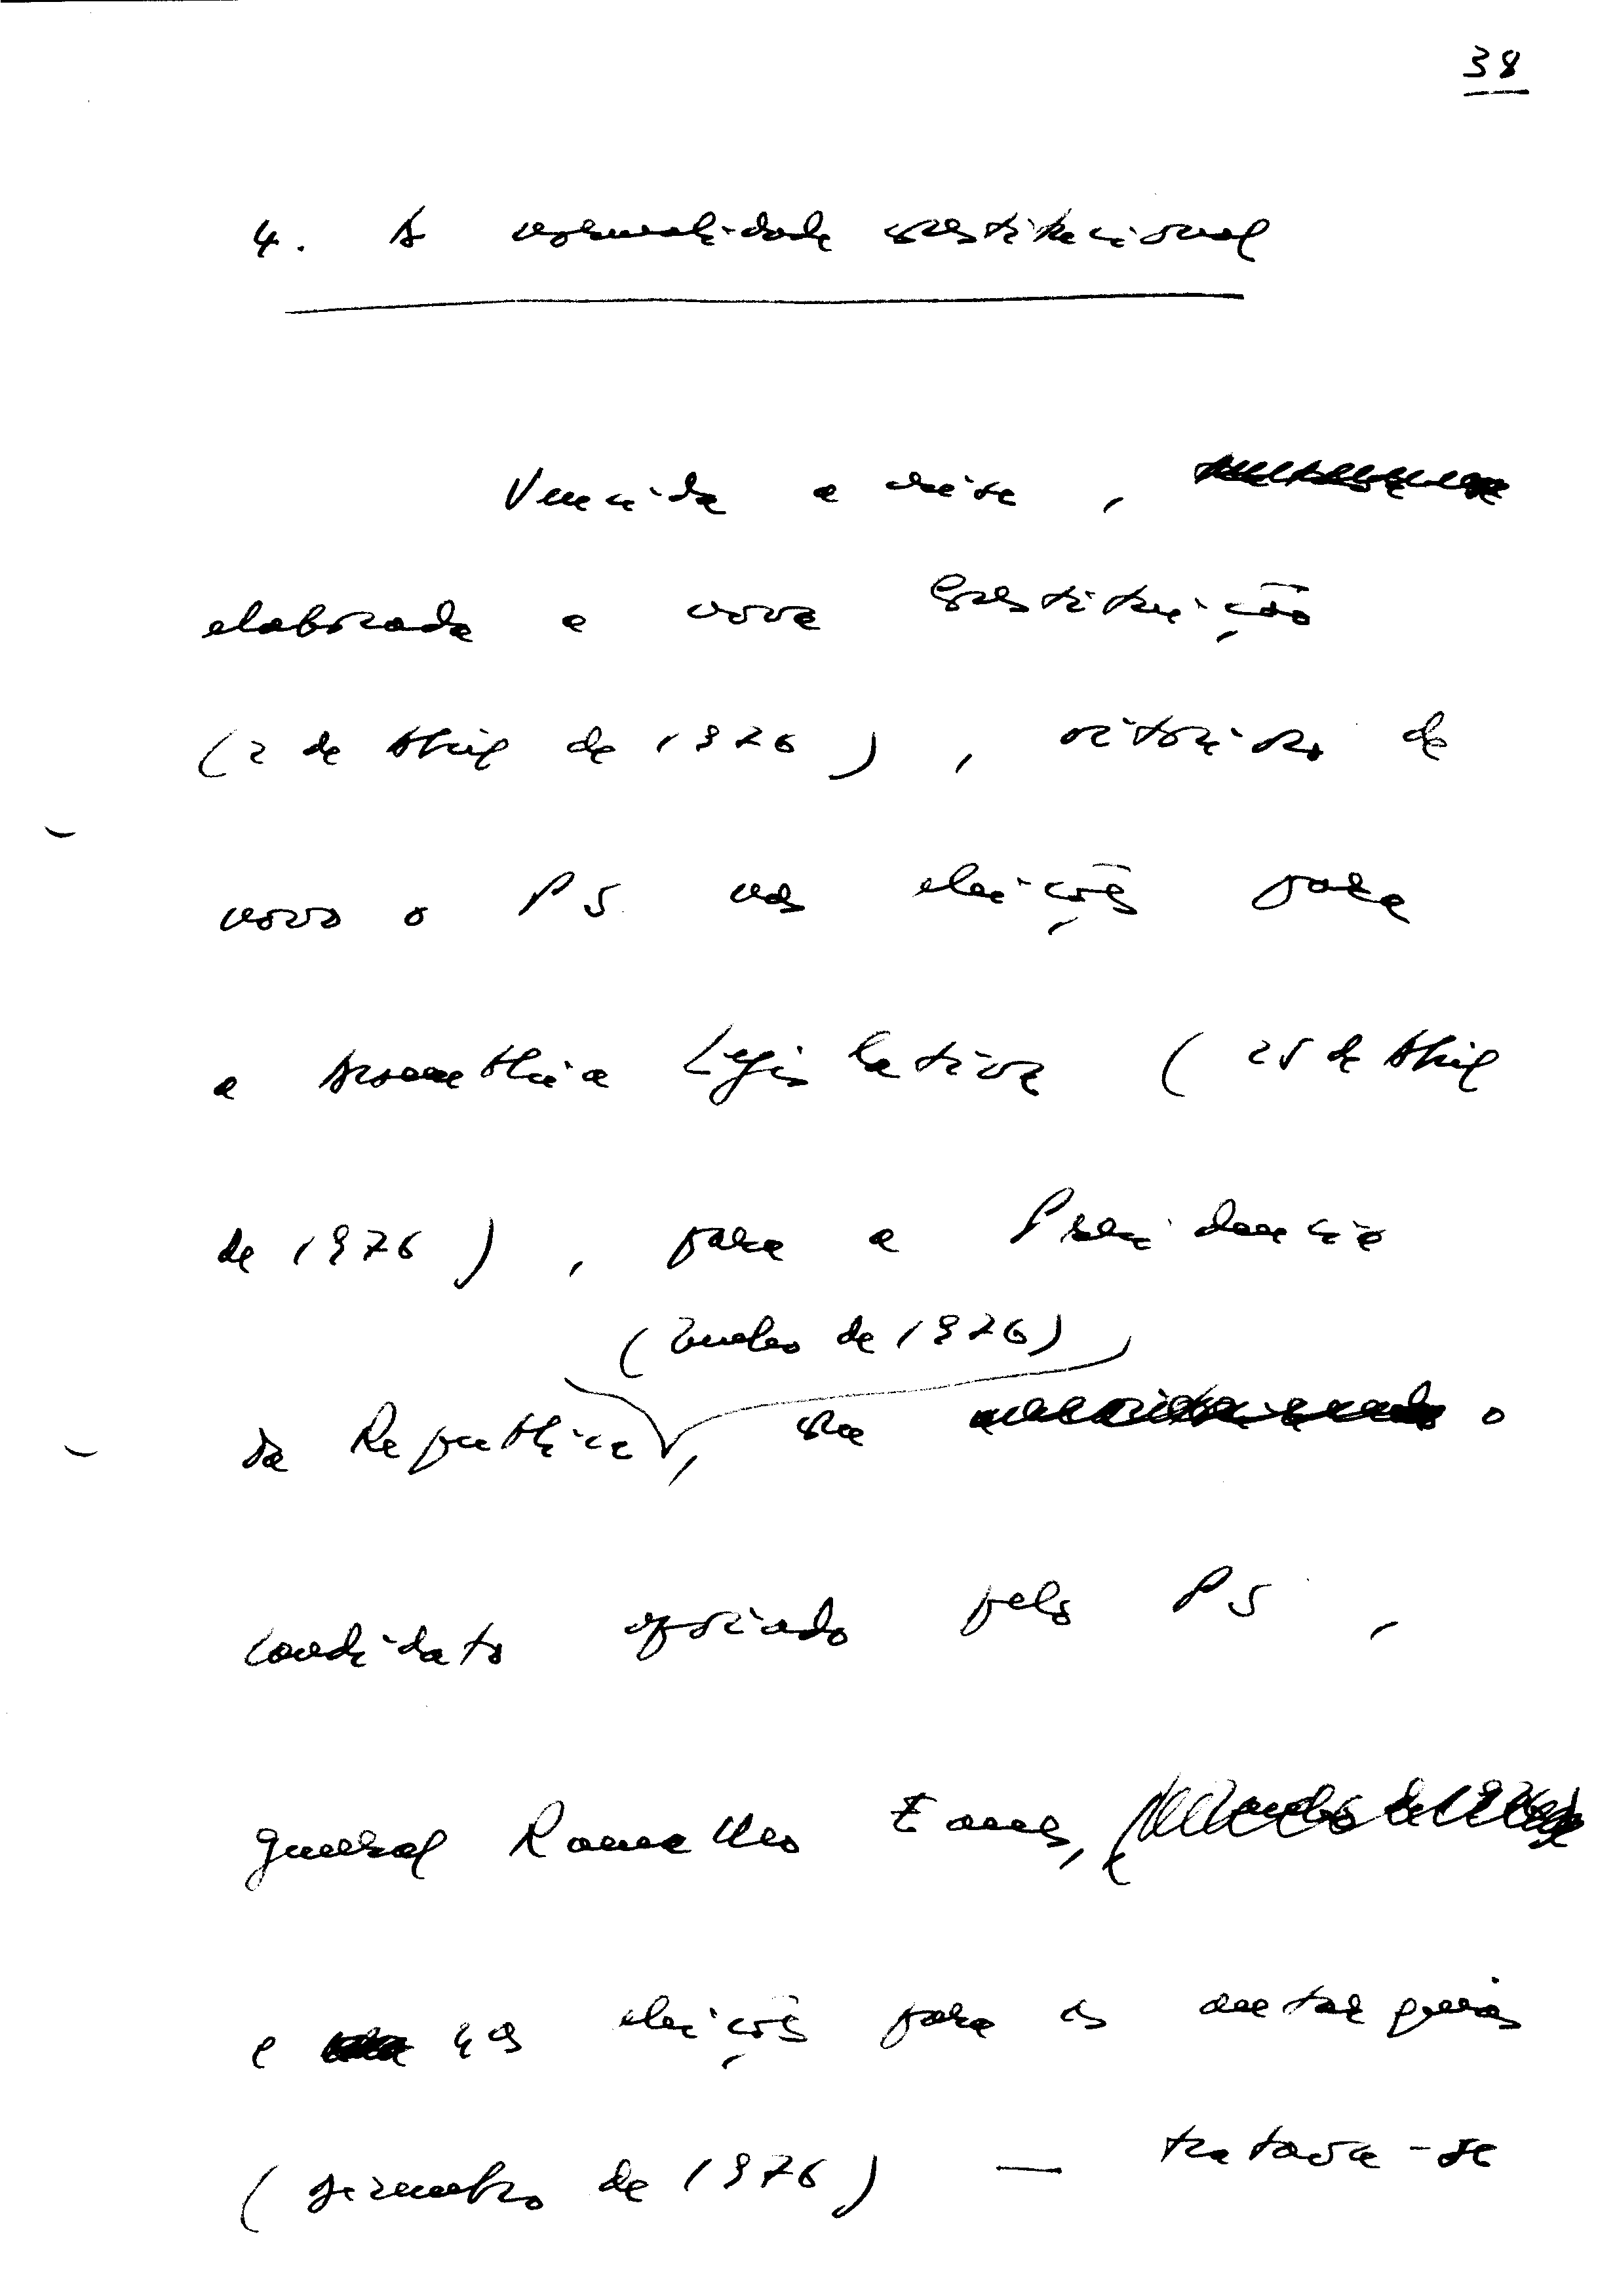 38
4. A normalidade constitucional
Vencida a crise,
elaborada a nova Constituição
(2 de Abril de 1976), vitorioso de
novo o PS nas eleições para
a Assembleia Legislativa (25 de Abril
de 1976), para a Presidencia
(Junho de 1976)
da Republica, com o
candidato apoiado pelo PS,
general Ramalho Eanes,
e nas eleições para as autarquias
(Dezembro de 1976) — tratava-se